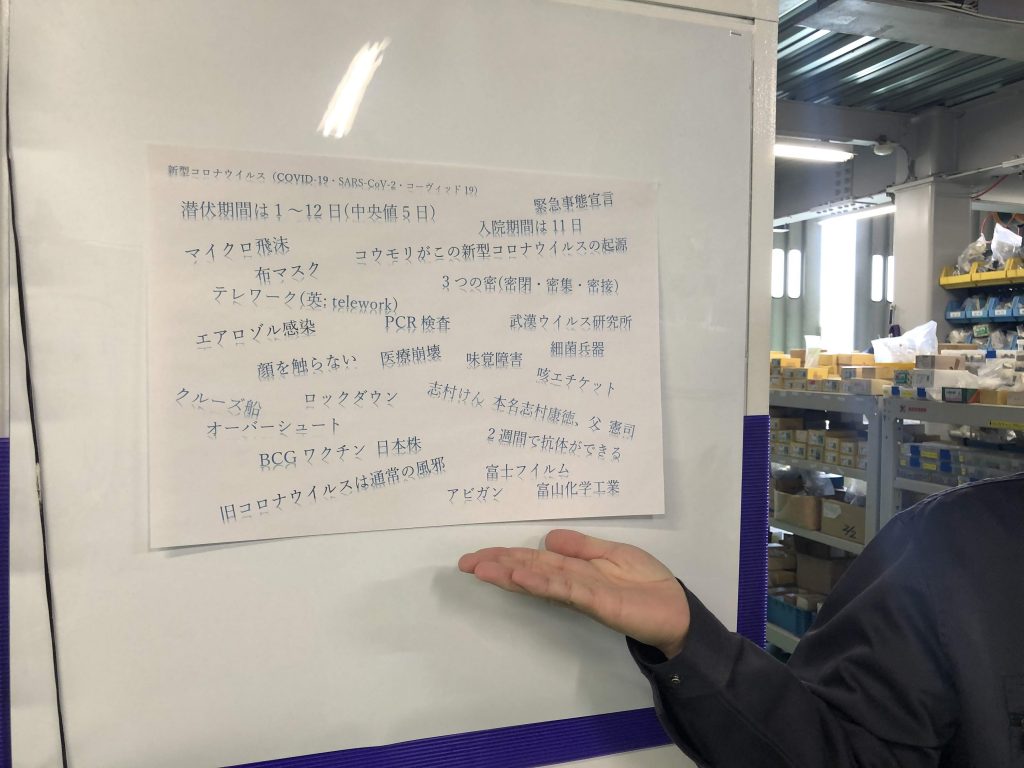 新型コロナウイルス（COVID-19・SARS-CoV-2・コーヴィッド19）
緊急事態宣言
潜伏期間は1～12日(中央値5日)
入院期間は11日
マイクロ飛沫
コウモリがこの新型コロナウイルスの起源
布マスク
3つの密(密閉・密集・密接)
テレワーク(英: telework)
エアロゾル感染
PCR検査
武漢ウイルス研究所
顔を触らない
医療崩壊
味覚障害
細菌兵器
咳エチケット
クルーズ船
ロックダウン
志村けん 本名志村康徳、父 憲司
オーバーシュート
2週間で抗体ができる
BCGワクチン 日本株
富士フイルム
旧コロナウイルスは通常の風邪
アビガン
富山化学工業
2/2